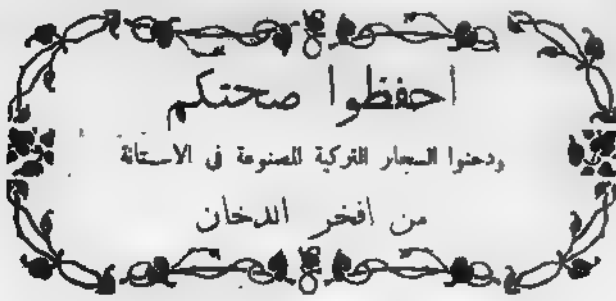 احفظوا صحتكم
ودخنوا السجاير التركية المصنوعة في الاستانة
من افخر الدخان